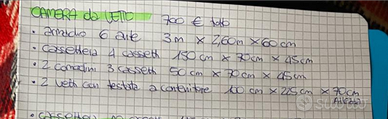 CAMERA da LETTO 700 € tutto
• armadio 6 ante 3 m x 2,60m x 60 cm
• cassettiera 4 cassetti 130 cm x 70 cm x 45 cm
• 2 comodini 3 cassetti 50 cm x 70 cm x 45 cm
• 2 letti con testata a contenitore 100 cm x 225 cm x 70 cm
Altezza